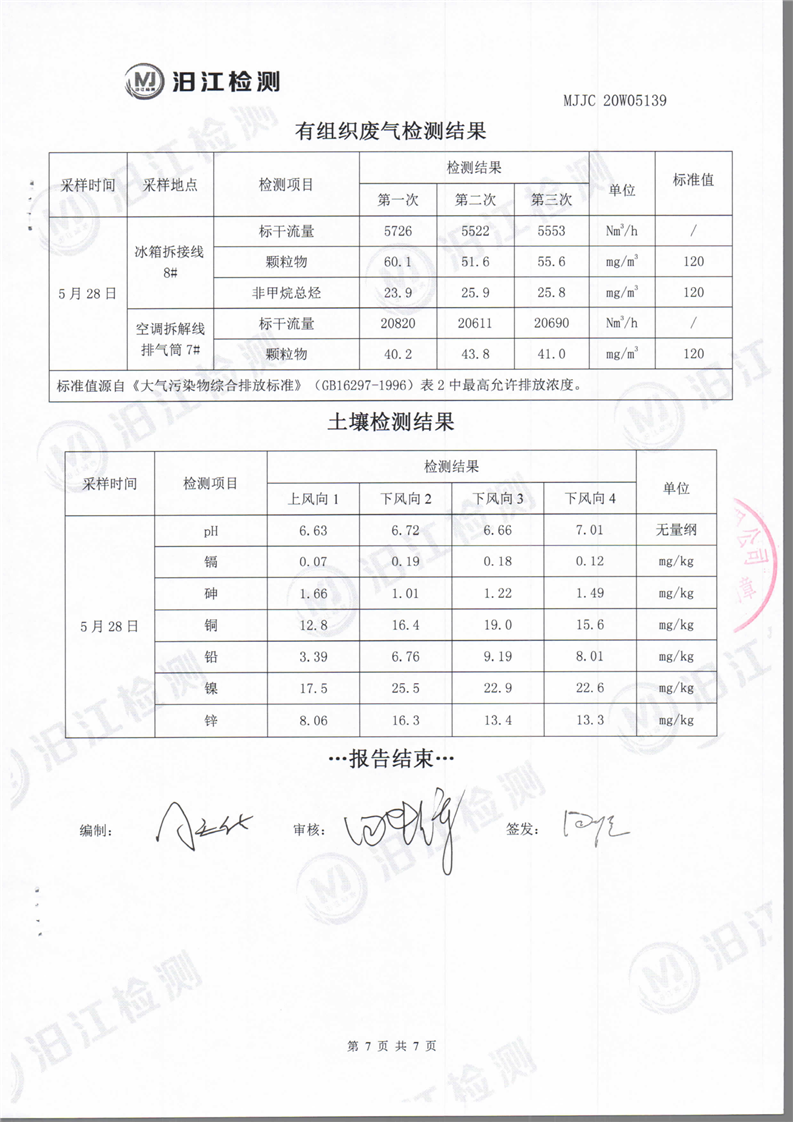 汨江检测
MJJC 20W05139
有组织废气检测结果
采样时间 采样地点 检测项目 检测结果 单位 标准值
第一次 第二次 第三次
5月28日 冰箱拆接线8# 标干流量 5726 5522 5553 Nm³/h /
颗粒物 60.1 51.6 55.6 mg/m³ 120
非甲烷总烃 23.9 25.9 25.8 mg/m³ 120
空调拆解线排气筒7# 标干流量 20820 20611 20690 Nm³/h /
颗粒物 40.2 43.8 41.0 mg/m³ 120
标准值源自《大气污染物综合排放标准》（GB16297-1996）表2中最高允许排放浓度。
土壤检测结果
采样时间 检测项目 检测结果 单位
上风向1 下风向2 下风向3 下风向4
5月28日 pH 6.63 6.72 6.66 7.01 无量纲
镉 0.07 0.19 0.18 0.12 mg/kg
砷 1.66 1.01 1.22 1.49 mg/kg
铜 12.8 16.4 19.0 15.6 mg/kg
铅 3.39 6.76 9.19 8.01 mg/kg
镍 17.5 25.5 22.9 22.6 mg/kg
锌 8.06 16.3 13.4 13.3 mg/kg
…报告结束…
编制： 审核： 签发：
公司
章
第 7 页 共 7 页